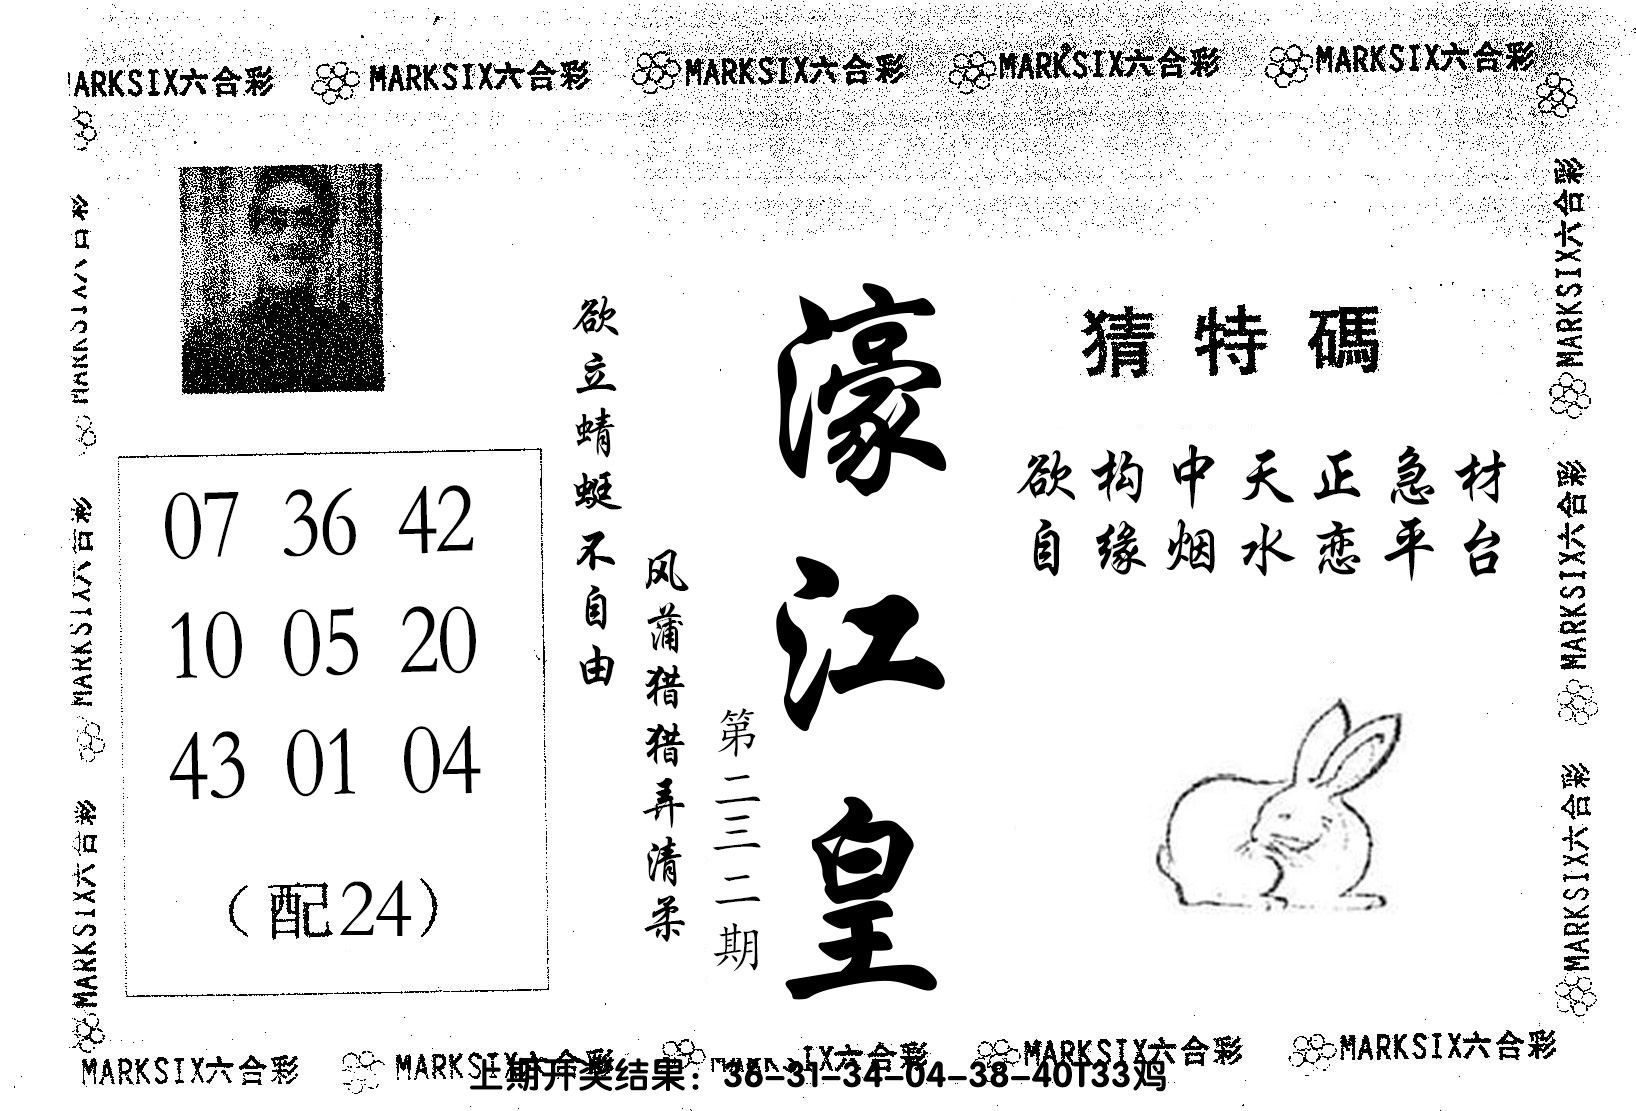 MARKSIX六合彩 MARKSIX六合彩 MARKSIX六合彩 MARKSIX六合彩 MARKSIX六合彩
猜特碼
欲构中天正急材
自缘烟水恋平台
濠江皇
第二三二期
风蒲猎猎弄清柔
欲立蜻蜓不自由
07 36 42
10 05 20
43 01 04
（配24）
MARKSIX六合彩
MARKSIX六合彩
MARKSIX六合彩
MARKSIX六合彩
MARKSIX六合彩
MARKSIX六合彩
MARKSIX六合彩 MARKSIX六合彩 MARKSIX六合彩 MARKSIX六合彩 MARKSIX六合彩
上期开奖结果：36-31-34-04-38-40T33鸡